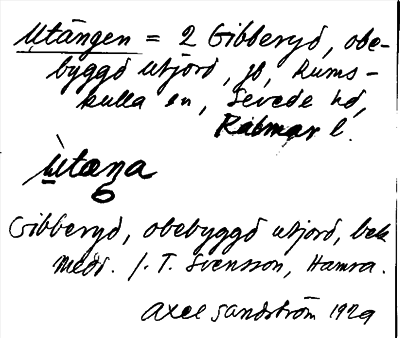 Utängen = 2 Gibberyd, obe-
byggd utjord, jb, Rums-
kulla sn, Sevede hd,
Kalmar l.
Utæŋa
Gibberyd, obebyggd utjord, bek
medd. J. T. Svensson, Hamra.
Axel Sandström 1929